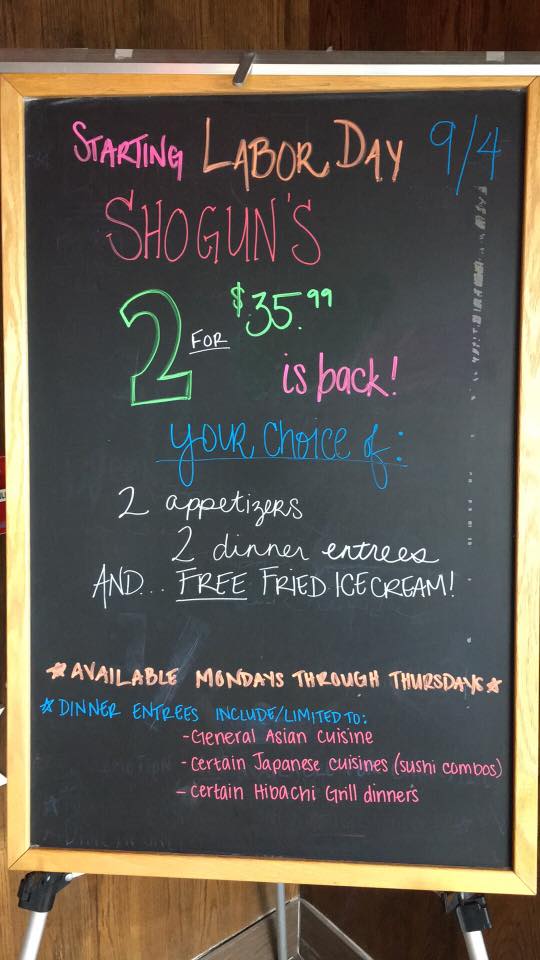 STARTING LABOR DAY 9/4
SHOGUN'S
2 FOR $35.99
is back!
YOUR choice of:
2 appetizers
2 dinner entrees
AND... FREE FRIED ICE CREAM!
*AVAILABLE MONDAYS THROUGH THURSDAYS*
*DINNER ENTREES INCLUDE/LIMITED TO:
-General Asian cuisine
-Certain Japanese cuisines (sushi combos)
-Certain Hibachi Grill dinners